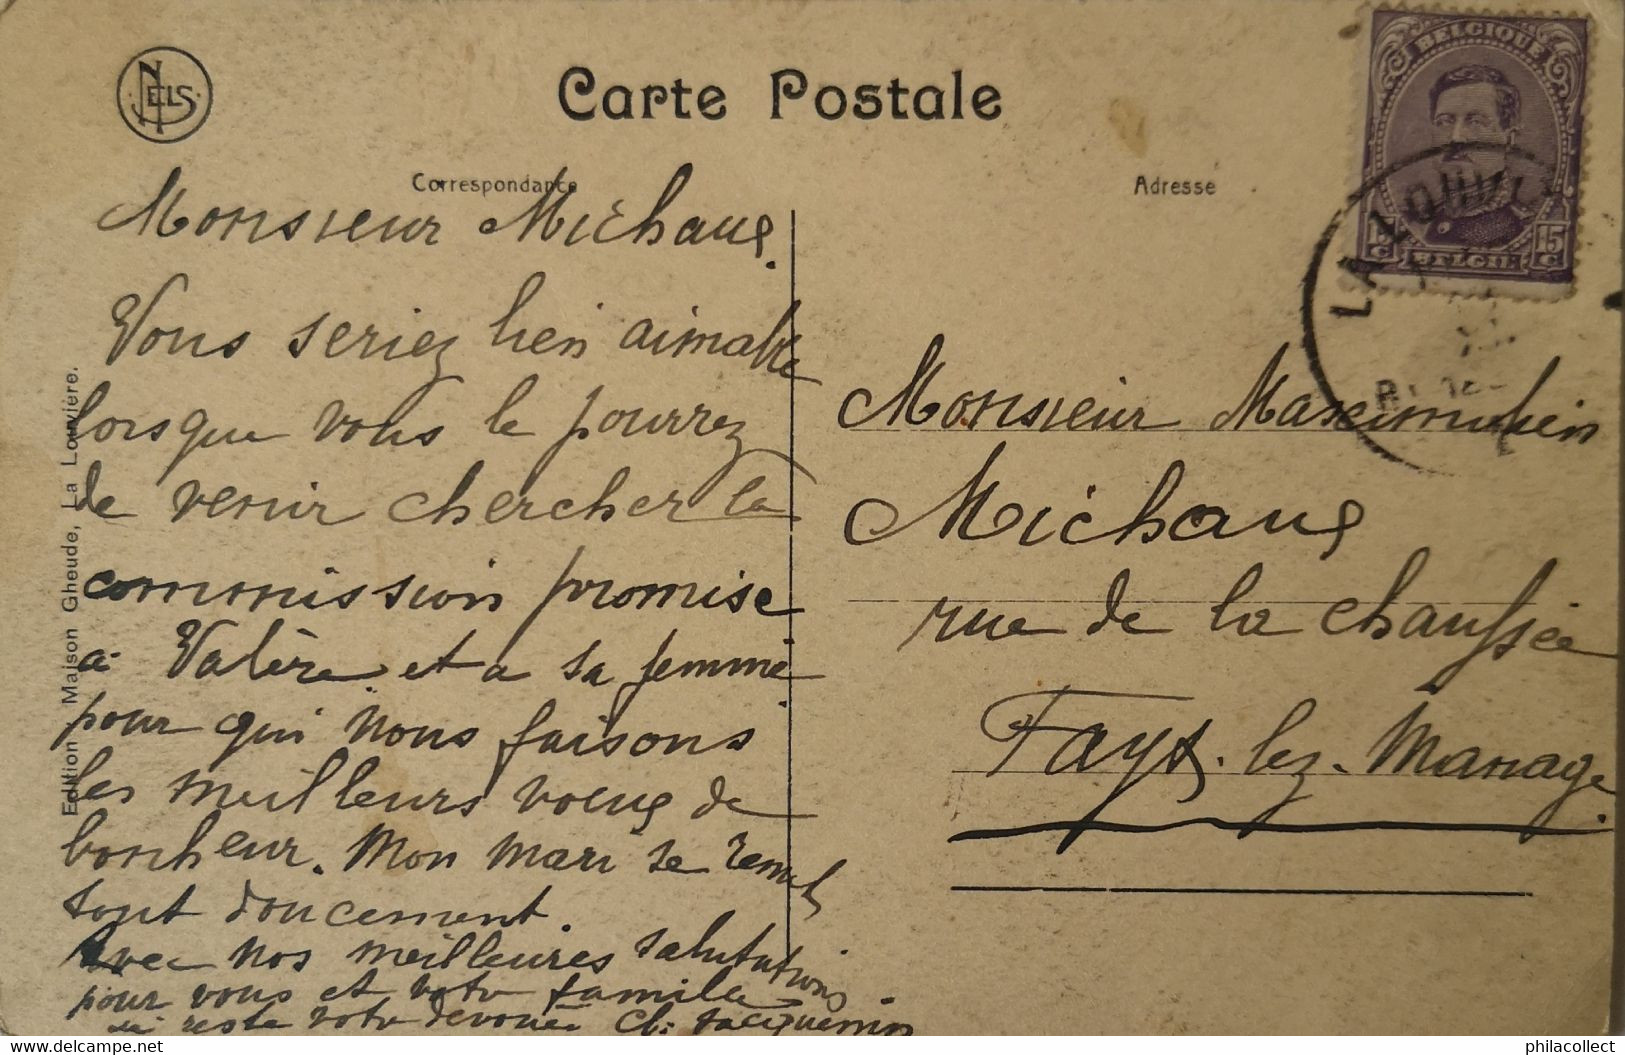 NELS
Carte Postale
Correspondance
Adresse
BELGIQUE
15 c
15 c
BELGIE
LA LOUVI
Edition Maison Gheude, La Louvière.
Monsieur Michaux.
Vous seriez bien aimable
lorsque vous le pourrez
de venir chercher la
commission promise
à Valère et a sa femme
pour qui nous faisons
les meilleurs voeux de
bonheur. Mon mari se remet
tout doucement.
Avec nos meilleures salutations
pour vous et votre famille
je reste votre dévouée Cl. Jacquemin
Monsieur Maximilien
Michaux
rue de la chaussée
Fayt-lez-Manage.
philacollect
philacollect
www.delcampe.net